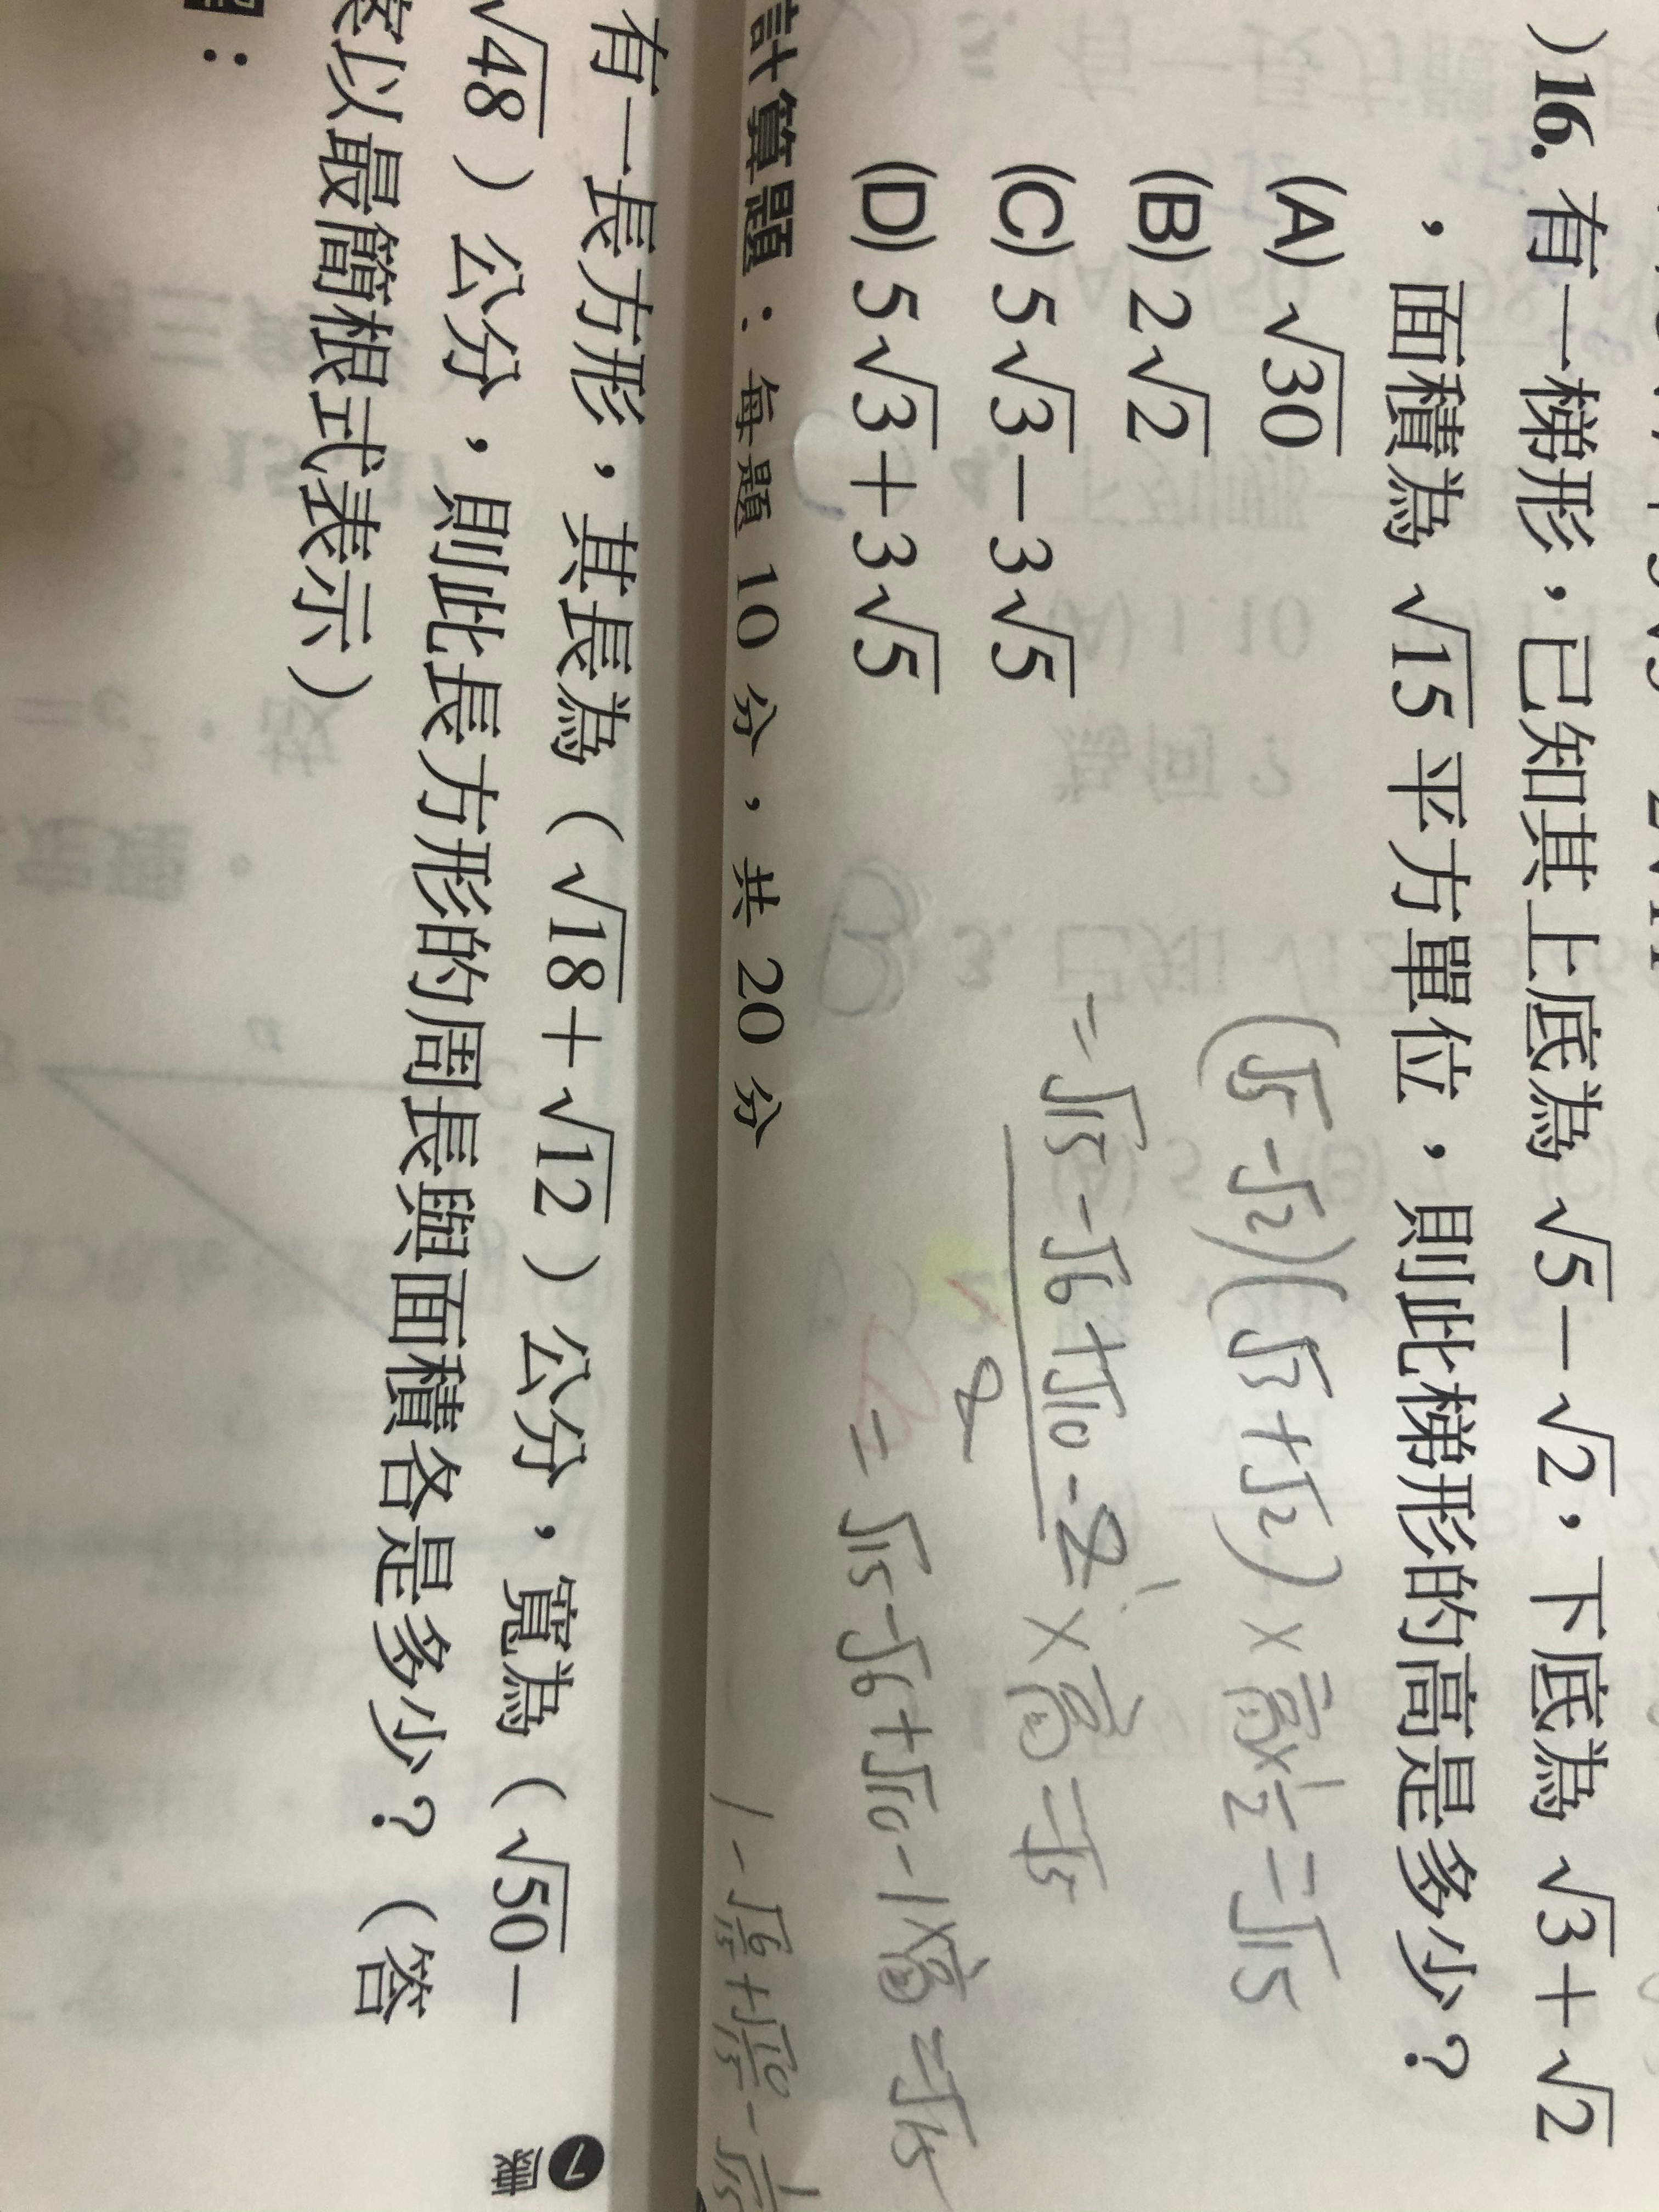 )16. 有一梯形，已知其上底為 √5－√2，下底為 √3＋√2
，面積為 √15 平方單位，則此梯形的高是多少？
(A) √30
(B) 2√2
(C) 5√3－3√5
(D) 5√3＋3√5
(√5-√2)(√3+√2)×高×1/2=√15
=√15-√6+√10-2/2×高=√15
=√15-√6+√10-1×高=√15
計算題：每題 10 分，共 20 分
有一長方形，其長為（√18＋√12）公分，寬為（√50－
√48）公分，則此長方形的周長與面積各是多少？（答
案以最簡根式表示）
：
7